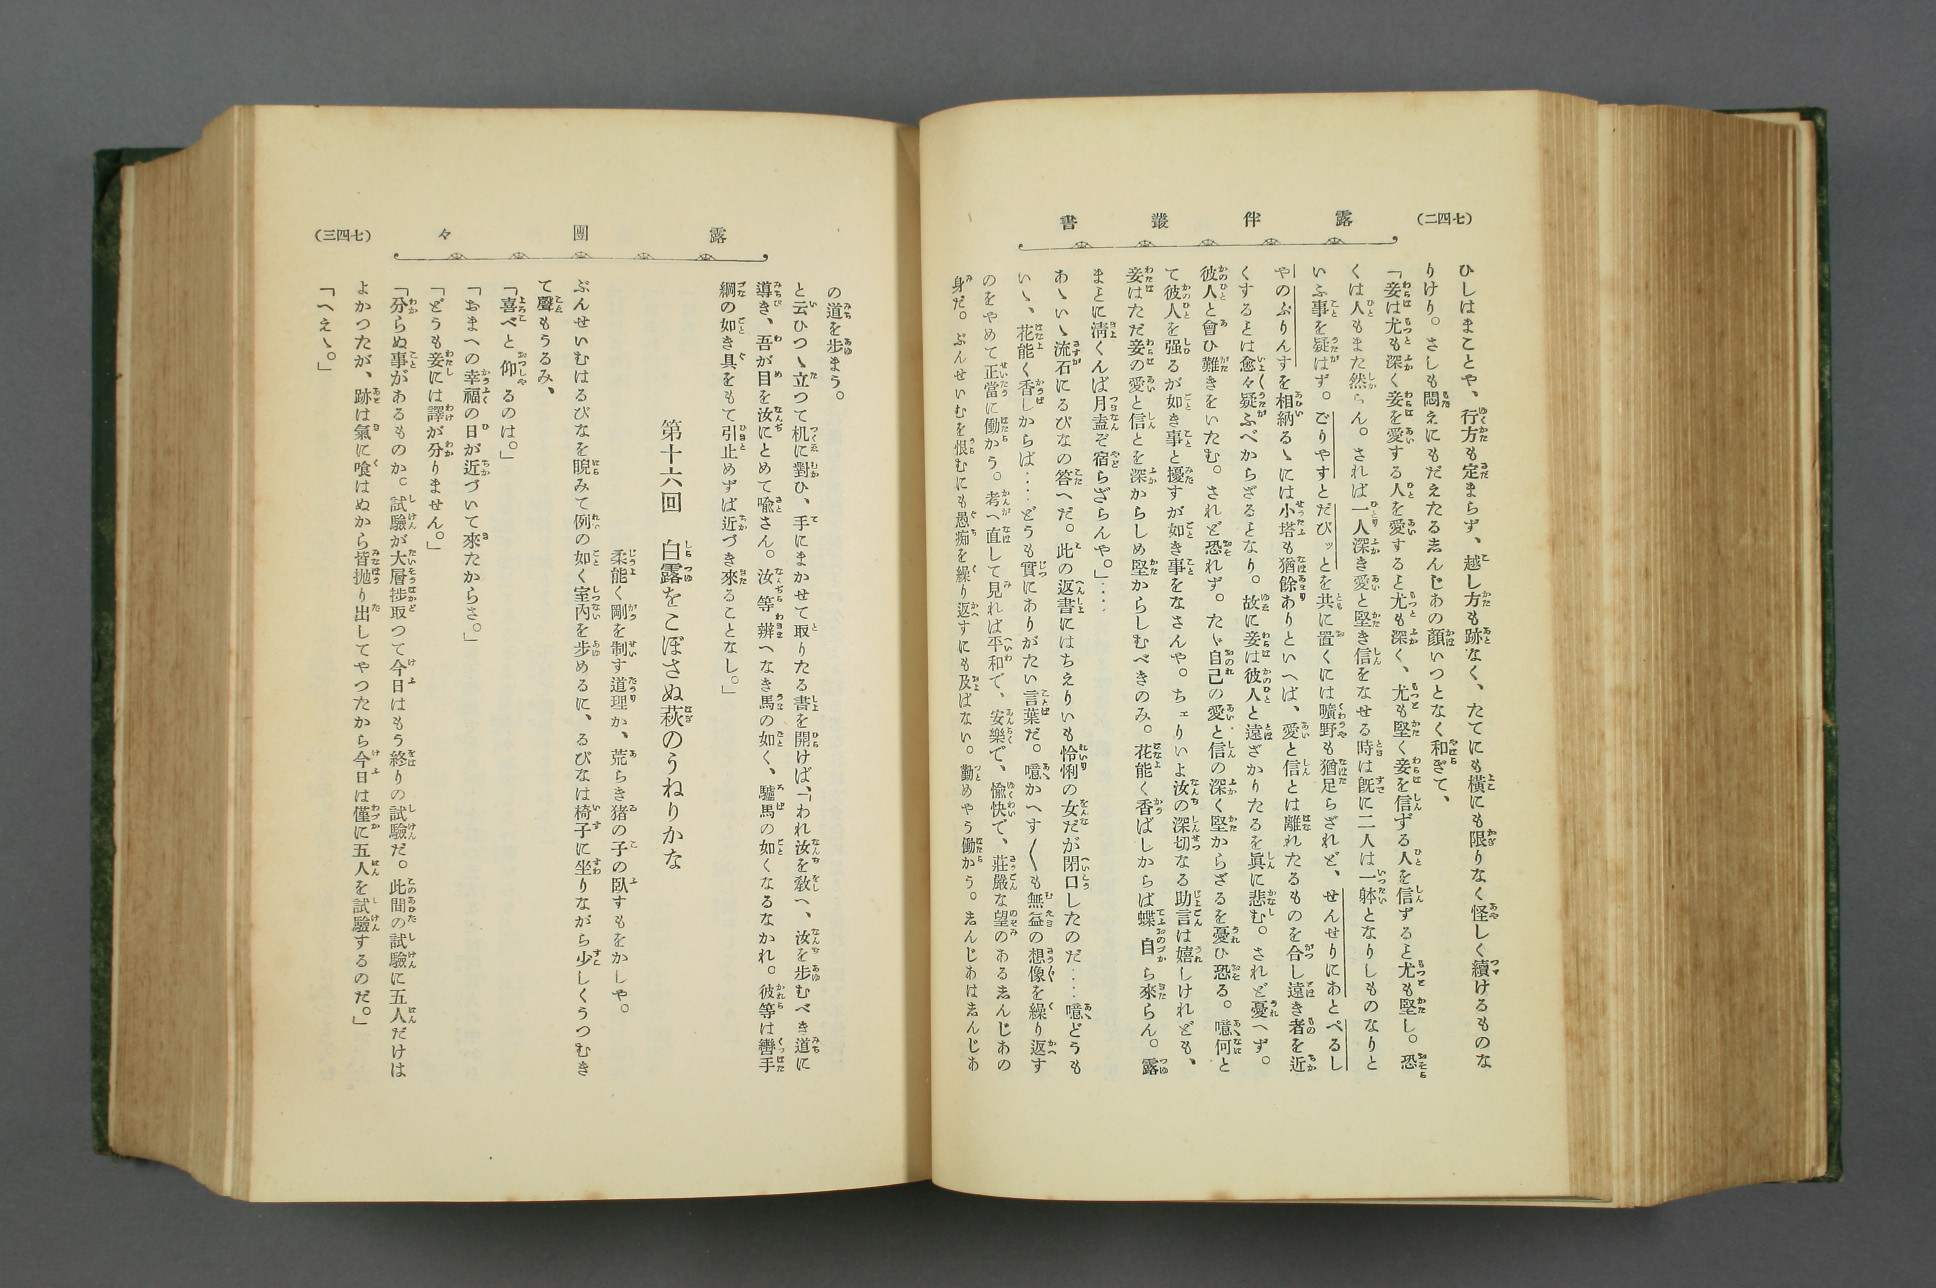 （七四二）
露伴叢書
ひしはまことや、行方も定まらず、越し方も跡なく、たてにも橫にも限りなく怪しく續けるものな
りけり。さしも悶えにもだえたるゑんじあの顏いつとなく和ぎて、
「妾は尤も深く妾を愛する人を愛すると尤も深く、尤も堅く妾を信ずる人を信ずると尤も堅し。恐
くは人もまた然らん。されば一人深き愛と堅き信をなせる時は既に二人は一躰となりしものなりと
いふ事を疑はず。ごりやすとだびッとを共に置くには曠野も猶足らざれど、せんせりにあとぺるし
やのぷりんすを相納るゝには小塔も猶餘ありといへば、愛と信とは離れたるものを合し遠き者を近
くするとは愈々疑ふべからざるとなり。故に妾は彼人と遠ざかりたるを眞に悲む。されど憂へず。
彼人と會ひ難きをいたむ。されど恐れず。たゞ自己の愛と信の深く堅からざるを憂ひ恐る。噫何と
て彼人を强るが如き事と擾すが如き事をなさんや。ちェりいよ汝の深切なる助言は嬉しけれども、
妾はただ妾の愛と信とを深からしめ堅からしむべきのみ。花能く香ばしからば蝶自ら來らん。露
まとに淸くんば月盍ぞ宿らざらんや。」‥‥
あゝいゝ流石にるびなの答へだ。此の返書にはちえりいも怜悧の女だが閉口したのだ‥‥噫どうも
いゝ、花能く香しからば‥‥どうも實にありがたい言葉だ。噫かへす〱も無益の想像を繰り返す
のをやめて正當に働かう。考へ直して見れば平和で、安樂で、愉快で、莊嚴な望のあるゑんじあの
身だ。ぶんせいむを恨むにも愚痴を繰り返すにも及ばない。勤めやう働かう。ゑんじあはゑんじあ
（七四三）
露團々
の道を步まう。
と云ひつゝ立つて机に對ひ、手にまかせて取りたる書を開けば、「われ汝を敎へ、汝を步むべき道に
導き、吾が目を汝にとめて喩さん。汝等辨へなき馬の如く、驢馬の如くなるなかれ。彼等は轡手
綱の如き具をもて引止めずば近づき來ることなし。」
第十六回　白露をこぼさぬ萩のうねりかな
柔能く剛を制す道理か、荒らき猪の子の臥すもをかしや。
ぶんせいむはるびなを睨みて例の如く室內を步めるに、るびなは椅子に坐りながら少しくうつむき
て聲もうるみ、
「喜べと仰るのは。」
「おまへの幸福の日が近づいて來たからさ。」
「どうも妾には譯が分りません。」
「分らぬ事があるものか。試驗が大層捗取つて今日はもう終りの試驗だ。此間の試驗に五人だけは
よかつたが、跡は氣に喰はぬから皆抛り出してやつたから今日は僅に五人を試驗するのだ。」
「へえゝ。」